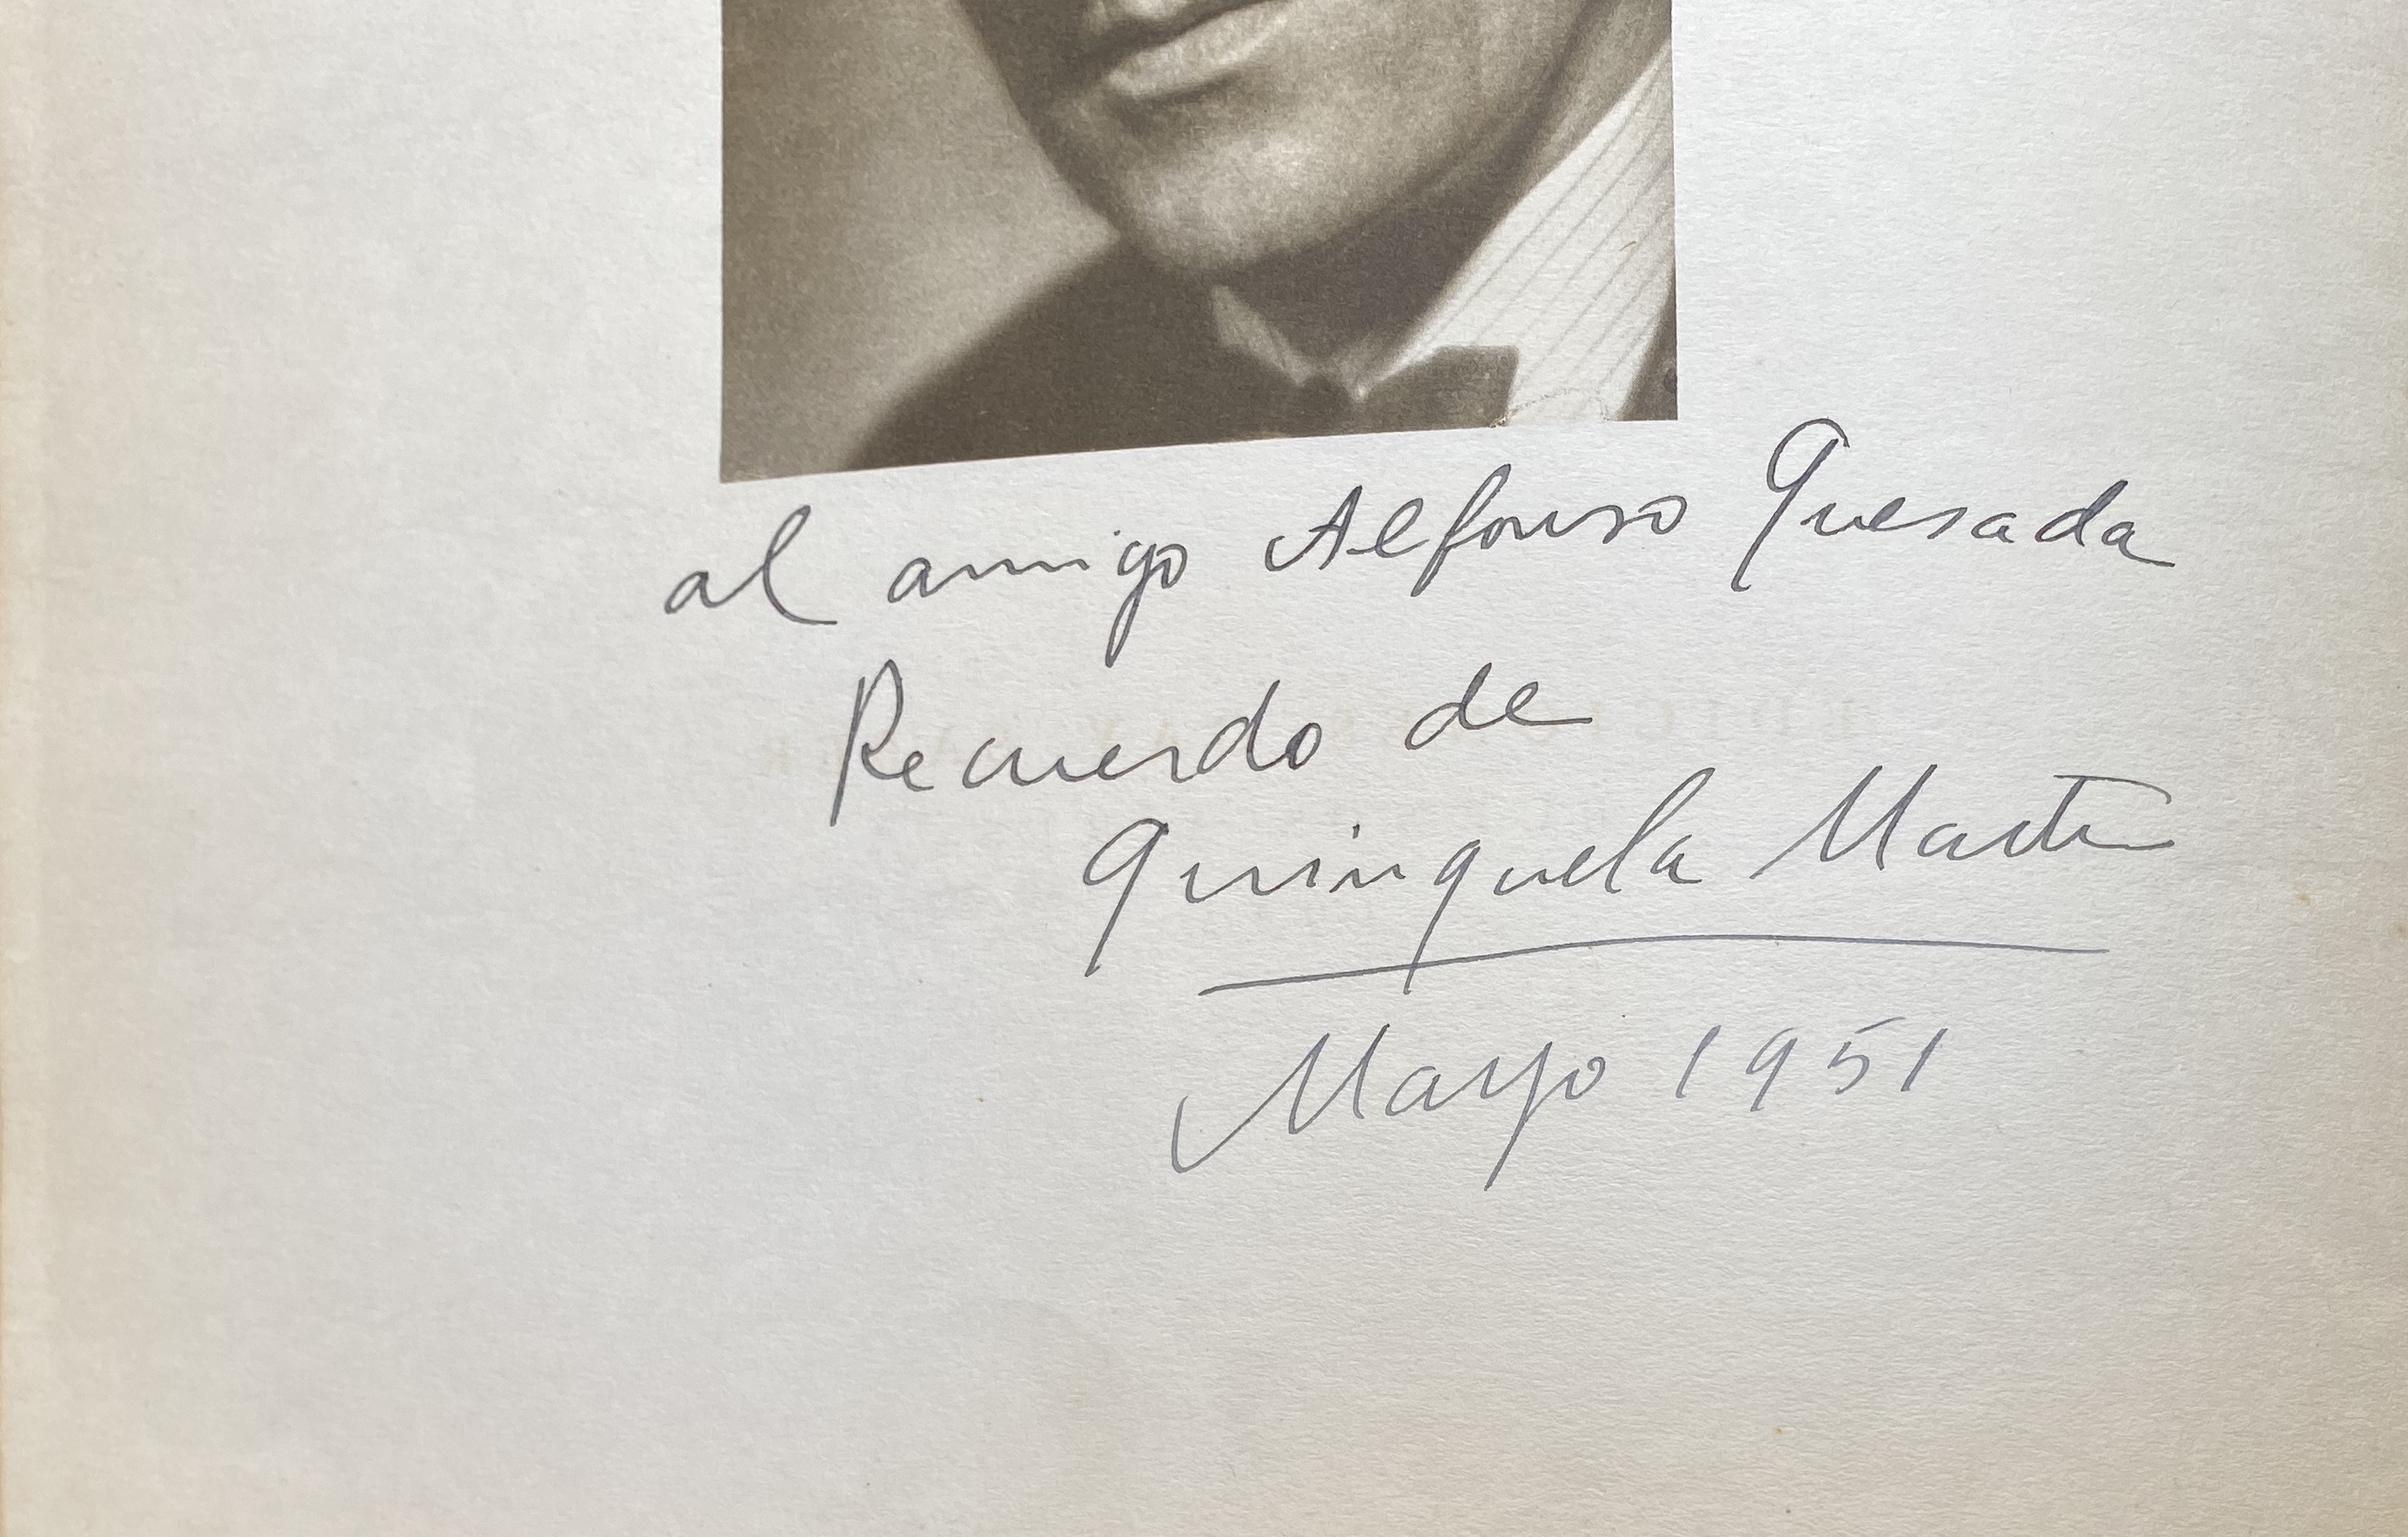 al amigo Alfonso Quesada
Recuerdo de
Quinquela Martin
Mayo 1951